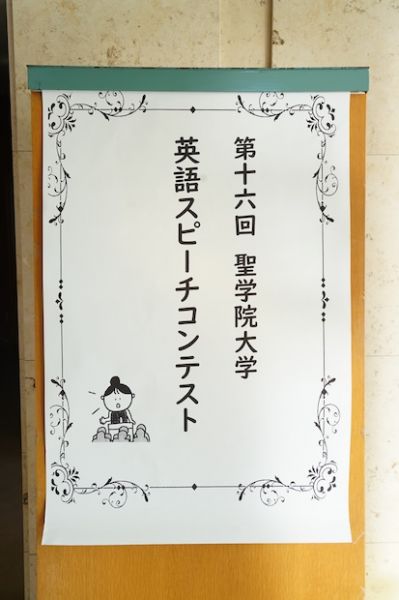 第十六回 聖学院大学
英語スピーチコンテスト